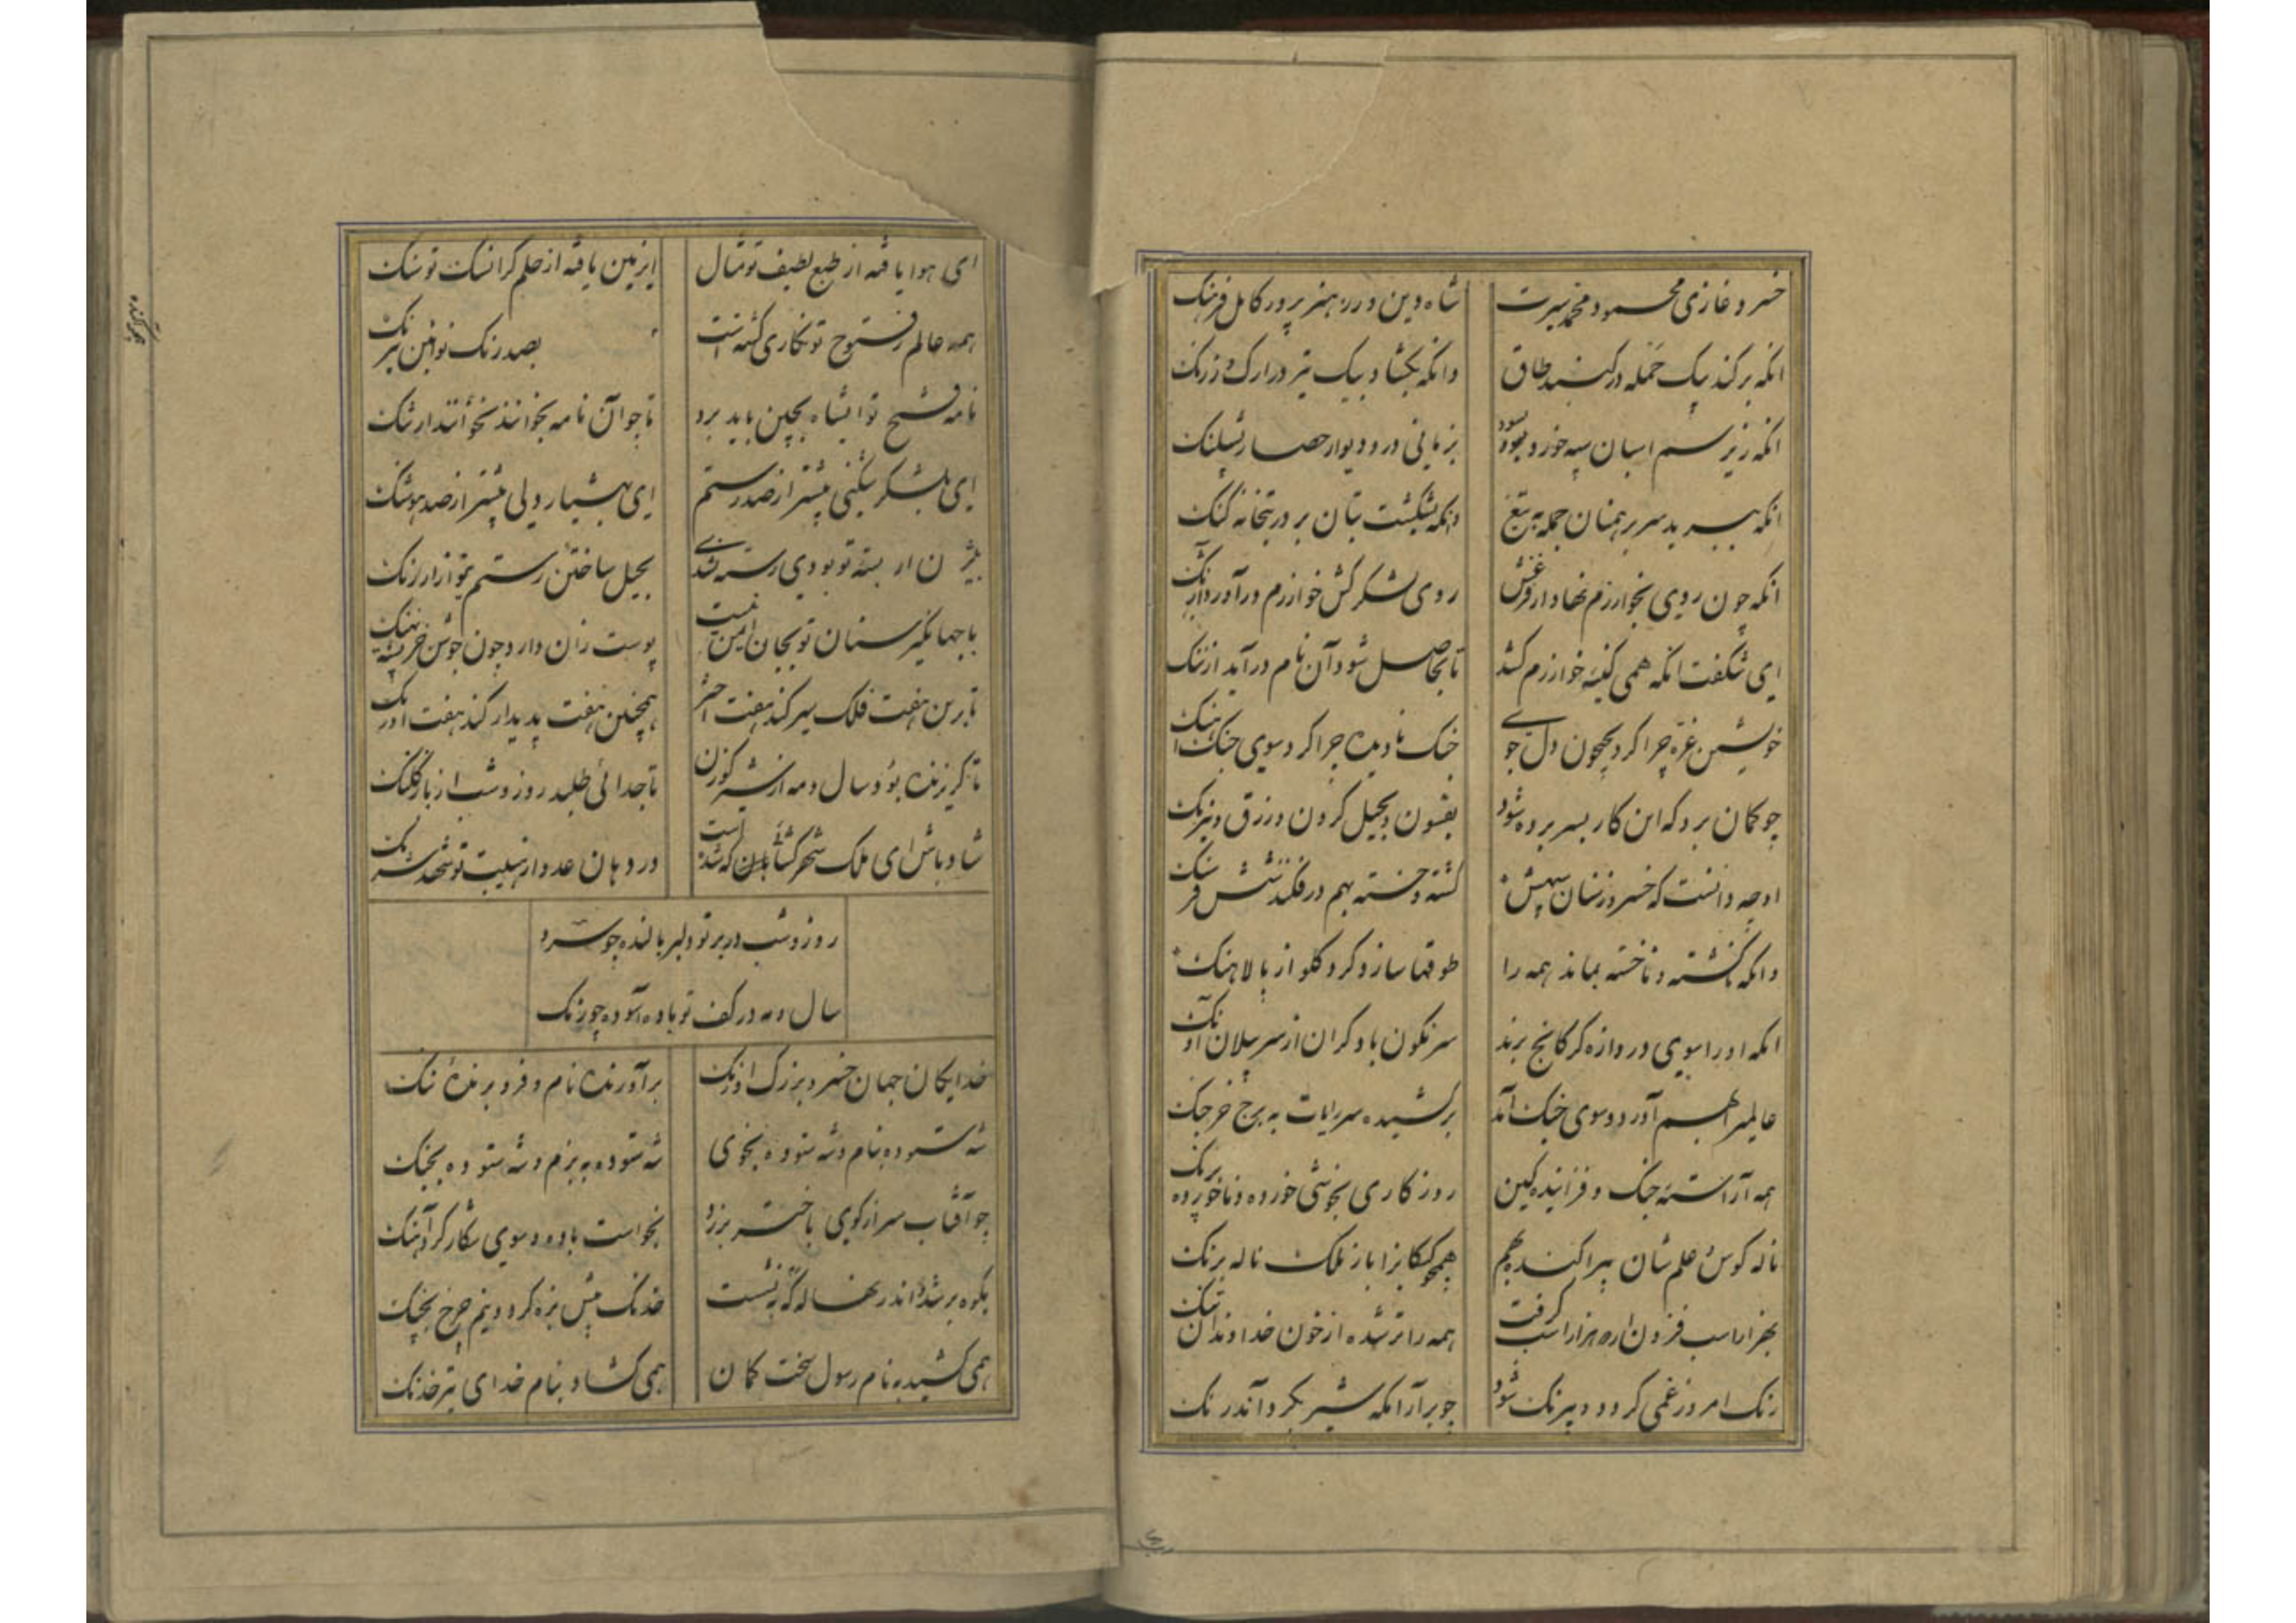 خسرو غازی محمود محمد سیرت
شاه دین ورز هنرپرور کامل فرهنگ
انکه برکند بیک حمله در کنبد طاق
وانکه بکشاد بیک تیر در ارک زرنک
انکه زیر سم اسبان سپه خورد بسود
بزمانی در و دیوار حصار بشلنک
انکه ببرید سر برهمنان جمله به تیغ
وانکه بشکست بتان بر در بتخانه کنک
انکه چون روی بخوارزم نهاد از فزعش
روی لشکرکش خوارزم درآورد آژنک
ای شکفت انکه همی کینه خوارزم کشد
تا بحاصل شود آن نام درآمد از ننک
خویشتن غره چرا کرد بجیحون دل جوی
جنک نادیده چرا کرد سوی جنک آهنک
چو کمان برد که این کار بسر برده شود
بفسون و بحیل کردن و زرق و نیرنک
او چه دانست که خسرو ز سران سپهش
کشته و خسته بهم درفکند شش فرسنک
وانکه ناکشته و ناخسته بماند همه را
طوقها سازد کرد کلو از پالاهنک
انکه او را بسوی دروازه کرکانج برند
سرنکون باد کران از سر پیلان آونک
عالمی را بهم آورد و سوی جنک آمد
برکشیده سر رایات به برج خرجنک
همه آراسته جنک و فزاینده کین
روزکاری بخوشی خورده و ناخورده برنک
ناله کوس علم شان بپراکند بهم
همه را تر شده از خون خداوندان تنک
رنک امروز غمی کردد و بیرنک شود
ای هوا یافته از طبع لطیف تو مثال
ای زمین یافته از حلم کرانسنک تو سنک
همه عالم ز فتوح تو نکاری کشته است
بصد رنک نو آئین نیرنک
نامه فتح تو ایشاه بچین باید برد
تا چو آن نامه بخوانند نخوانند ارتنک
ای بلشکر شکنی بیشتر از صد رستم
ای بهشیار دلی بیشتر از صد هوشنک
بیژن ار بسته تو بودی رسته نشدی
بحیل ساختن رستم نیو از ارژنک
با جهانکیر سنان تو بجان ایمن نیست
پوست زان دارد چون جوشن خرپشته نهنک
تا برین هفت فلک سیر کند هفت اختر
همچنین هفت پدیدار کند هفت اورنک
تا کریزنده بود سال و مه از شیر کوزن
تا جدائی طلبد روز و شب از باز کلنک
شاد باش ای ملک شهر کشایان که شده است
در دهان عدو از هیبت تو شهد شرنک
روز و شب در بر تو دلبر بالنده چو سرو
سال و مه در کف تو باده آسوده چو زنک
خدایکان جهان خسرو بزرک اورنک
برآورنده نام و فروبرنده ننک
شه ستوده بنام و شه ستوده بخوی
شه ستوده به بزم و شه ستوده بجنک
چو آفتاب سر از کوی باختر برزد
بخواست باده و سوی شکار کرد آهنک
بکوه برشد و اندر نهاله که بنشست
خدنک پیش بزه کرد و نیم چرخ بچنک
همی کشید بنام رسول سخت کمان
همی کشاد بنام خدای تیر خدنک